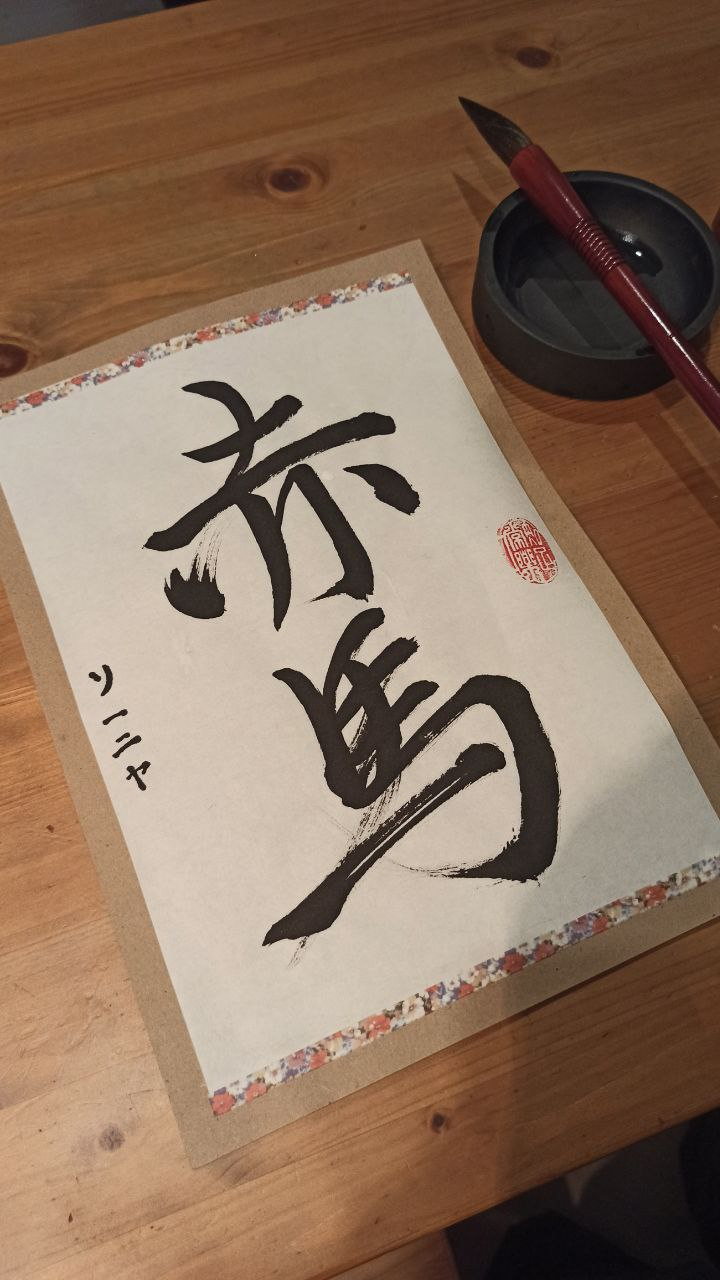 赤馬
ソーニヤ